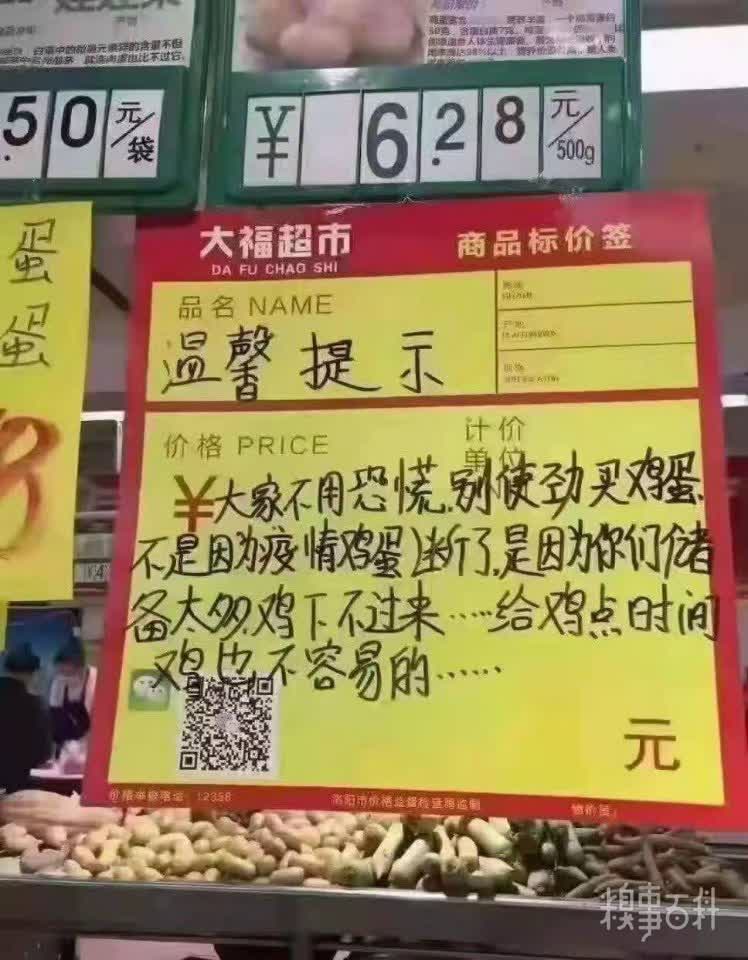 .50 元/袋
¥ 6.28 元/500g
大福超市
DA FU CHAO SHI
商品标价签
蛋
蛋
品名 NAME
温馨提示
价格 PRICE
计价
单位
¥大家不用恐慌,别使劲买鸡蛋.
不是因为疫情鸡蛋断了,是因为你们储
备太多,鸡下不过来……给鸡点时间
鸡也不容易的……
元
12358
洛阳市价格监督检查局监制
糗事百科